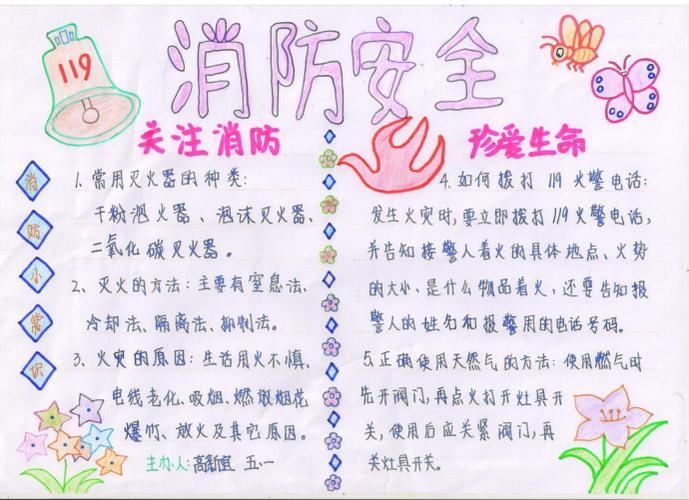 119
消防安全
关注消防
珍爱生命
消
防
小
常
识
1. 常用灭火器的种类:
干粉泡火器、泡沫灭火器、
二氧化碳灭火器。
2、灭火的方法:主要有窒息法、
冷却法、隔离法、抑制法。
3、火灾的原因:生活用火不慎、
电线老化、吸烟、燃放烟花
爆竹、放火及其它原因。
主办人: 高新宜 五.一
4.如何拨打 119 火警电话:
发生火灾时,要立即拨打119火警电话,
并告知接警人着火的具体地点、火势
的大小、是什么物品着火,还要告知报
警人的姓名和报警用的电话号码。
5.正确使用天然气的方法:使用燃气时
先开阀门,再点火打开灶具开
关,使用后应关紧阀门,再
关灶具开关。